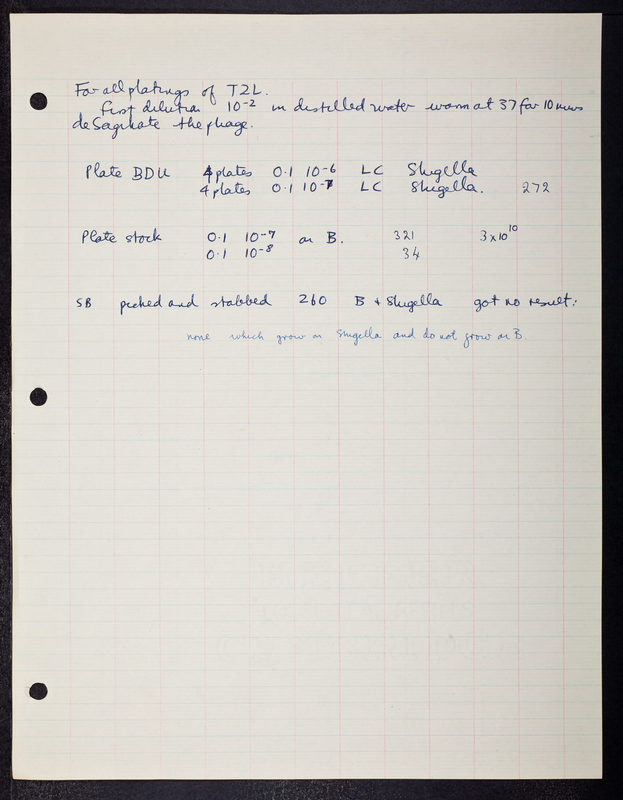 For all platings of T2L.
First dilution 10⁻² in distilled water warm at 37 for 10 mins
desagregate the phage.
Plate BDU 4 plates 0.1 10⁻⁶ LC Shigella
4 plates 0.1 10⁻⁷ LC Shigella. 272
Plate stock 0.1 10⁻⁷ on B. 321 3 x 10¹⁰
0.1 10⁻⁸ 34
SB picked and stabbed 260 B + Shigella got no result:
none which grow on Shigella and do not grow on B.